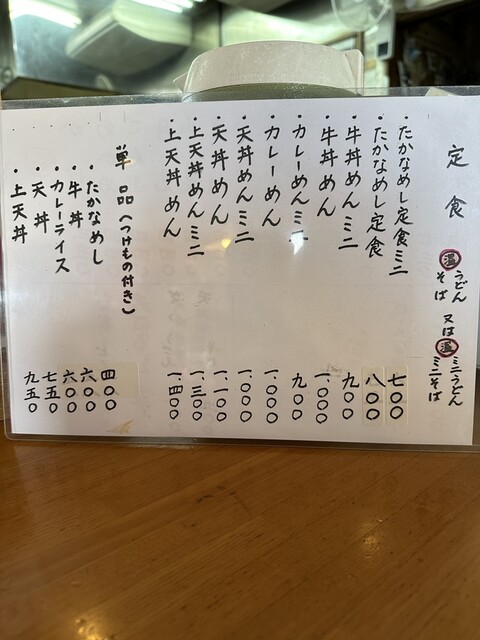 定食
温 うどん そば 又は 温 ミニうどん ミニそば
・たかなめし定食ミニ 七〇〇
・たかなめし定食 八〇〇
・牛丼めんミニ 九〇〇
・牛丼めん 一、〇〇〇
・カレーめんミニ 九〇〇
・カレーめん 一、〇〇〇
・天丼めんミニ 一、〇〇〇
・天丼めん 一、一〇〇
・上天丼めんミニ 一、三〇〇
・上天丼めん 一、四〇〇
単品(つけもの付き)
・たかなめし 四〇〇
・牛丼 六〇〇
・カレーライス 六〇〇
・天丼 七五〇
・上天丼 九五〇